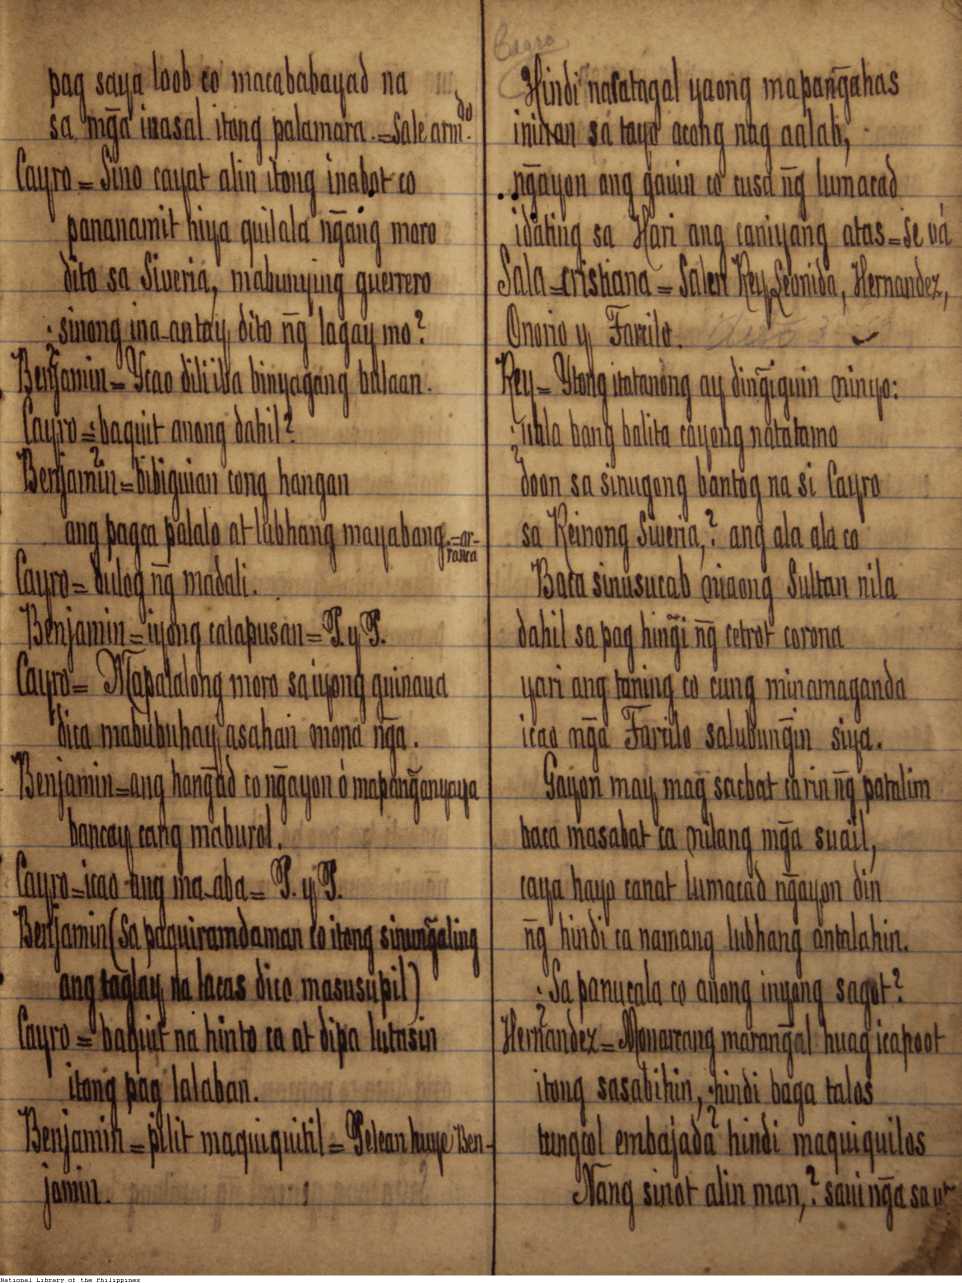 pag saya loob co macababayad na
sa mg̃a inasal itong palamara.=Sale arm.do
Cayro=Sino cayat alin itong inabot co
pananamit niya quilala ng̃ang moro
dito sa Siveria, mabunying guerrero
¿sinong ina-antay dito ng̃ lagay mo?
Benjamin=Ycao dili iba binyagang bulaan.
Cayro=¿baquit anong dahil?
Benjamin=bibiguian cong hangan
ang pagca palalo at lubhang mayabang.=ar-
ranca
Cayro=dulog ng̃ madali.
Benjamin=iyong catapusan=P. y P.
Cayro=Mapalalong moro sa iyong guinaua
dica mabubuhay asahan mona ng̃a.
Benjamin=ang hang̃ad co ng̃ayon ó mapang̃anyaya
bancay cang maburol.
Cayro=icao ang ma-aba=P. y P.
Benjamin (Sa paquiramdaman co itong sinung̃aling
ang taglay na lacas dico masusupil)
Cayro=baquit na hinto ca at dipa lutasin
itong pag lalaban.
Benjamin=pilit maquiquitil=Pelean huye Ben-
jamin.
Cayro
Hindi nacatagal yaong mapang̃ahas
iniuan sa tayo acong nag aalab,
ng̃ayon ang gauin co cusa ng̃ lumacad
idating sa Hari ang caniyang atas=Se vá
Sala=cristiana=Salen Rey, Leonida, Hernandez,
Onorio y Farilo.
Rey=Ytong itatanong ay ding̃iguin ninyo:
¿uala bang balita cayong natatamo
doon sa sinugong bantog na si Cayro
sa Reinong Siveria,? ang ala ala co
Baca sinusucab niaong Sultan nila
dahil sa pag hing̃i ng̃ cetrot corona
yari ang taning co cung minamaganda
icao ng̃a Farilo salubung̃in siya.
Gayon may mag sacbat carin ng̃ patalim
baca masabat ca nilang mg̃a suail,
caya hayo canat lumacad ng̃ayon din
ng̃ hindi ca namang lubhang antalahin.
¿Sa panucala co anong inyong sagot?
Hernandez=Monarcang marang̃al huag icapoot
itong sasabihin, ¿hindi baga talos
tungcol embajada hindi maquiquilos
Nang sinot alin man,? saui ng̃a sa ut-
National Library of the Philippines